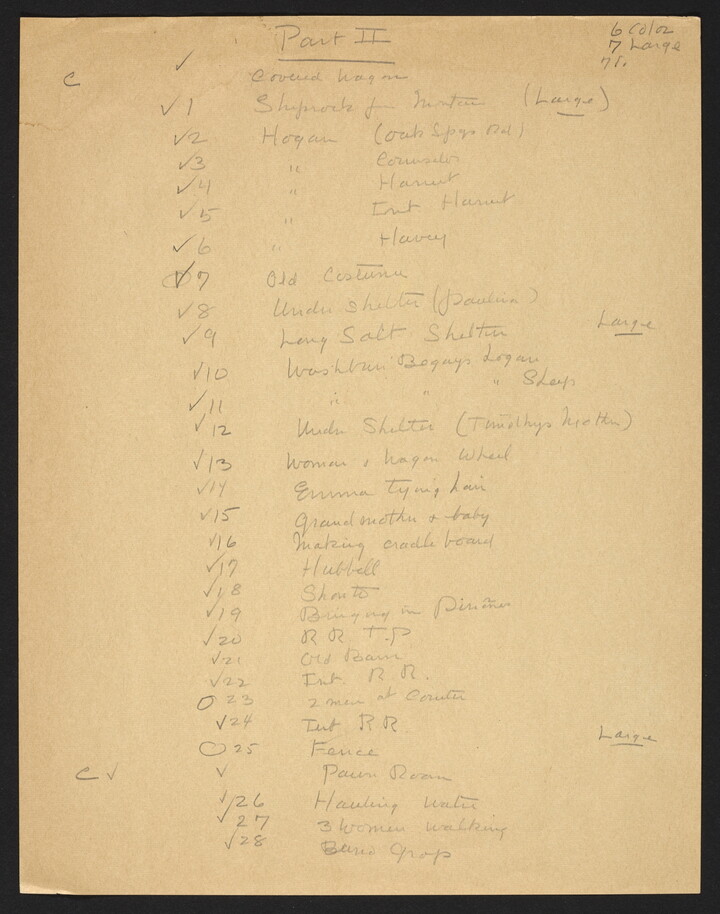 Part II
6 Color
7 Large
C ✓ Covered Wagon
✓ 1 Shiprock from Mountain (Large)
✓ 2 Hogan (Oak Spgs Rd)
✓ 3 " Counselor
✓ 4 " Harriet
✓ 5 " Int Harriet
✓ 6 "
✓ 7 Old Costume
✓ 8 Under Shelter (Paulina)
✓ 9 Long Salt Shelter Large
✓ 10 Washburn Begays Hogan
✓ 11 " " " Sheep
✓ 12 Under Shelter (Timothys Mother)
✓ 13 Woman & Wagon Wheel
✓ 14 Emma Tying hair
✓ 15 Grandmother & baby
✓ 16 Making cradle board
✓ 17 Hubbell
✓ 18 Shonto
✓ 19 Bringing in Piñons
✓ 20 R R T.P
✓ 21 Old Barn
✓ 22 Int. R R.
O 23 2 men at Counter
✓ 24 Int R R
O 25 Fence Large
C ✓ ✓ Pawn Room
✓ 26 Hauling Water
✓ 27 3 Women walking
✓ 28 Group